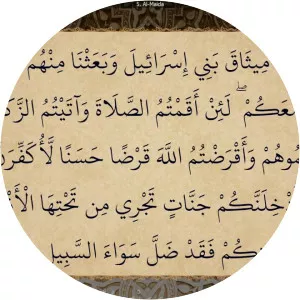 5. Al-Maida
مِيثَاقَ بَنِي إِسْرَائِيلَ وَبَعَثْنَا مِنْهُمُ
مَعَكُمْ ۖ لَئِنْ أَقَمْتُمُ الصَّلَاةَ وَآتَيْتُمُ الزَّكَ
مُوهُمْ وَأَقْرَضْتُمُ اللَّهَ قَرْضًا حَسَنًا لَّأُكَفِّرَن
خِلَنَّكُمْ جَنَّاتٍ تَجْرِي مِن تَحْتِهَا الْأَنْ
كُمْ فَقَدْ ضَلَّ سَوَاءَ السَّبِيلِ